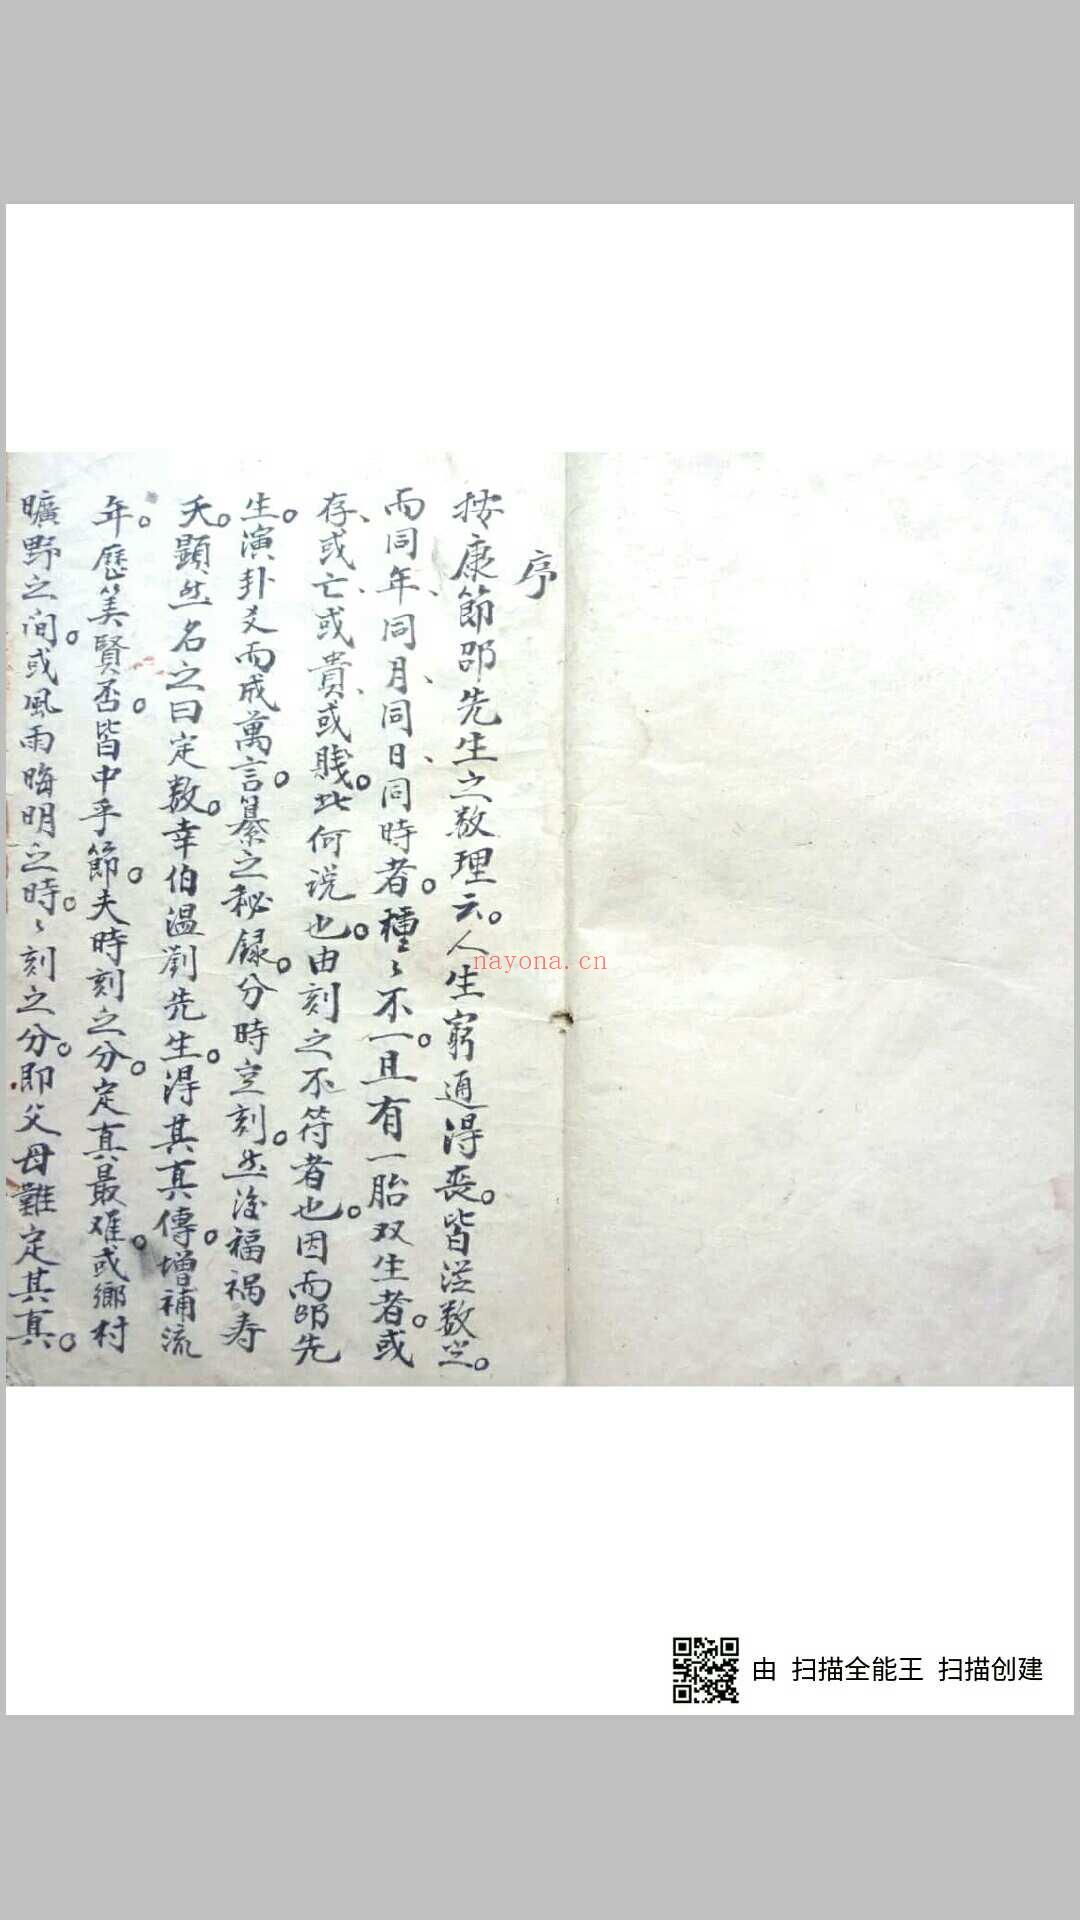 序
按康節邵先生之数理云。人生窮通得丧。皆従数出。
而同年、同月、同日、同時者。種〻不一。且有一胎双生者。或
存、或亡、或貴、或賤。此何说也。由刻之不符者也。因而邵先
生。演卦爻而成萬言。纂之秘録。分時定刻。然後福祸寿
夭。顯然名之曰定数。幸伯温劉先生。得其真傳。增補流
年。歷筭賢否。皆中乎節。夫時刻之分。定真最难。或鄉村
曠野之间。或風雨晦明之時。〻刻之分。即父母難定其真。
nayona.cn
由 扫描全能王 扫描创建